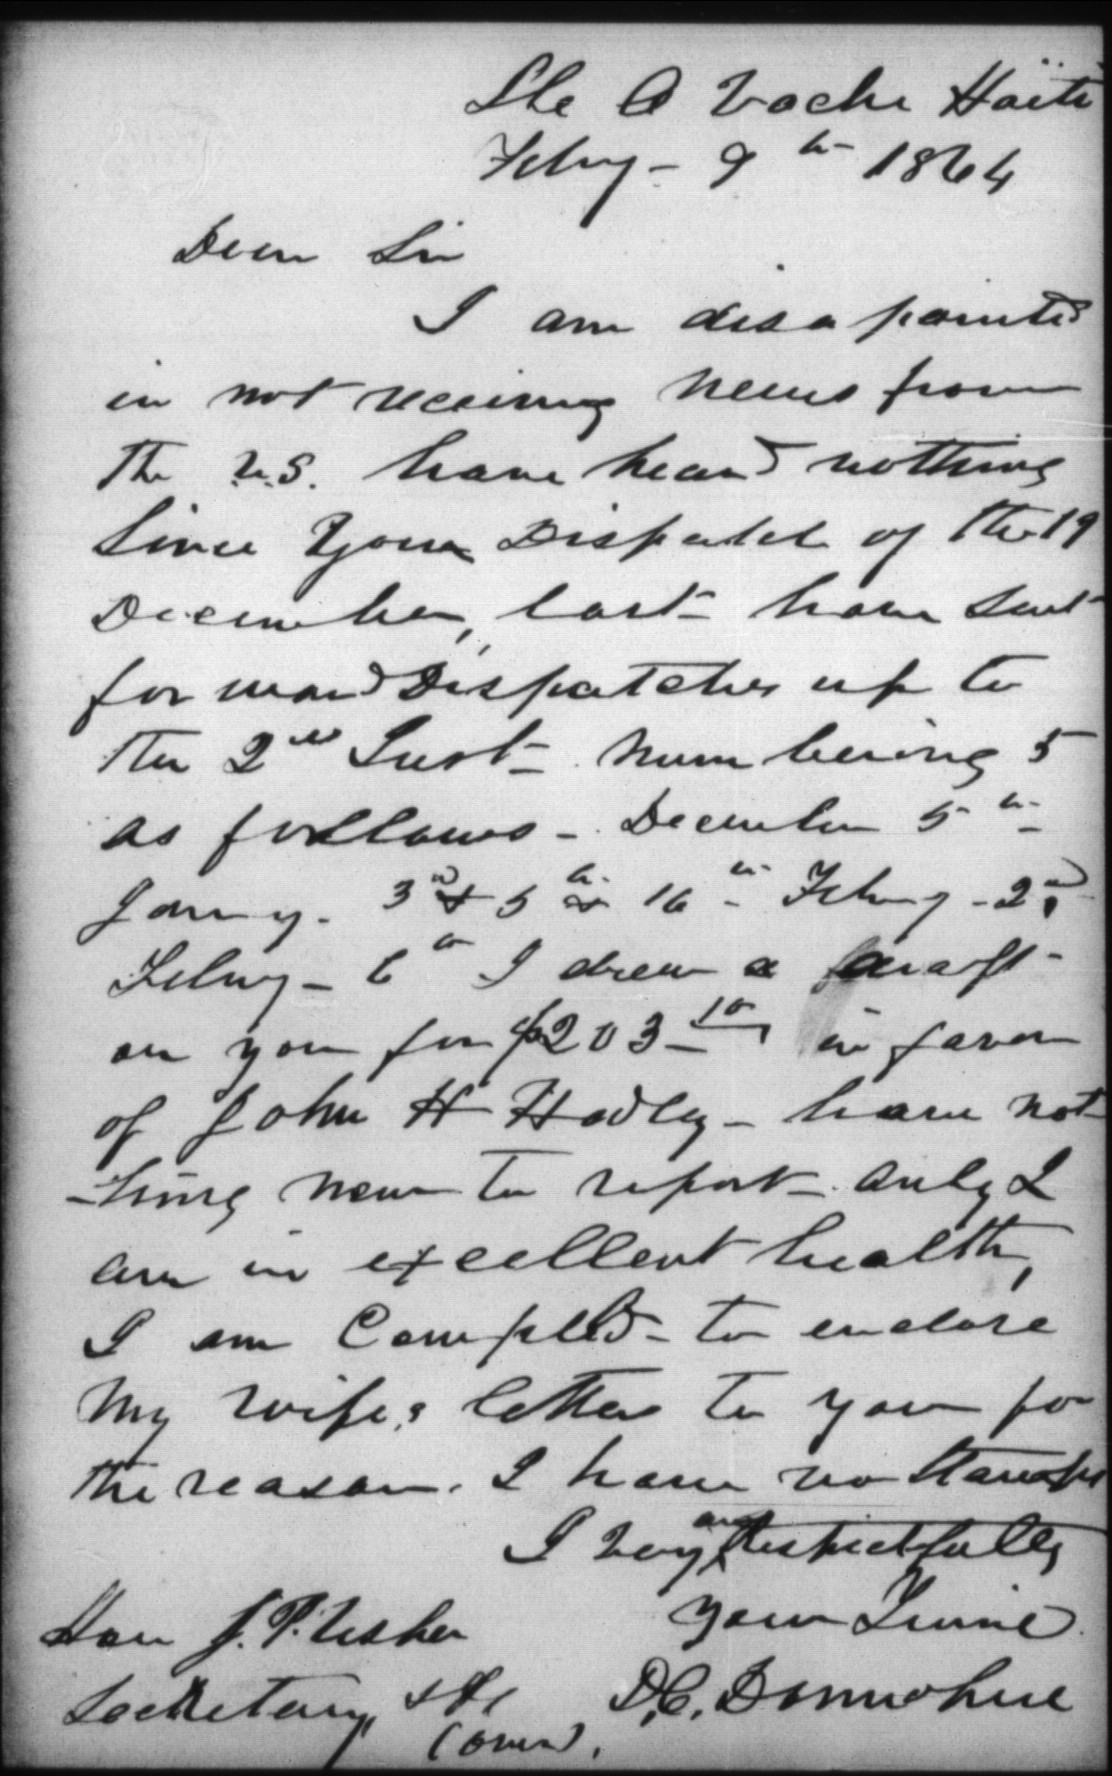 Ile A Vache Haiti
Feby - 9th 1864
Dear Sir
I am disapointed
in not receiving news from
the U.S. have heard nothing
Since Your Dispatch of the 19
December, last have sent
forward Dispatches up to
the 2nd Inst - numbering 5
as follows - December 5th
Jany. 3rd & 5th & 16th - Feby - 2nd
Feby - 6th I drew a draft -
on you for $203 10 in favor
of John H Hadley - have not
-hing new to report - only I
am in excellent health,
I am Complld - to enclose
my wifes letter to you for
the reason. I have no stamps
I very Respectfully
Your Friend
Hon J. P. Usher
D. C. Donnohue
Secretary &c
(over).